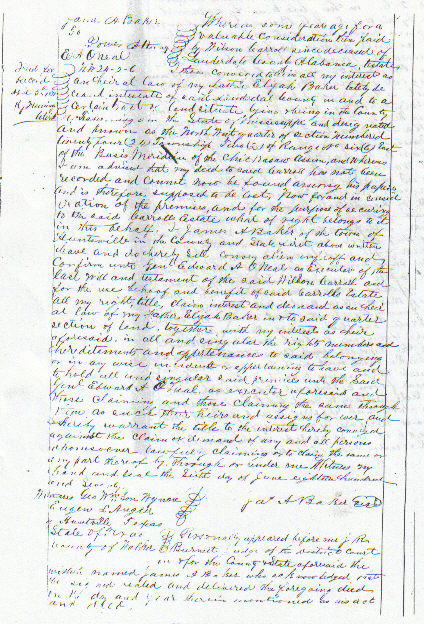 James A Baker
To
Power Attorney
E A O'Neal
Whereas some years ago for a
valuable consideration then paid
by Wilson Carroll since deceased of
Lauderdale County Alabama, 
I then conveyed to him all my interest as
an heir at law of my Father Elijah Baker late
and intestate of said County in and to a
Certain tract of land situate lying & being in the County
of in the State of Mississippi and designated
and known as the North West quarter of section numbered
twenty four 24 Township of Range No six East
of the Basis Meridian of the Chickasaw Cession, and Whereas
I am advised that my deed to said Carroll has not been
recorded and cannot now be found among his papers
and is therefore supposed to be lost, Now for and in consid
eration of the premises, and for the purpose of securing
to the said Carrolls Estate what of right belongs to it
in this behalf, I James A Baker of the town of
Huntsville in the County and State first above written
have and do hereby sell convey alien and
confirm unto Genl Edward A O'Neal as executor of the
last Will and testament of the said Wilson Carroll and
for the use behoof and benefit of said Carrolls Estate
all my right title, claim interest and demand as an heir
at law of my Father Elijah Baker in & to said quarter
section of land, together with my interest as heir
aforesaid, in all and singular the rights members and
hereditaments and appurtenances to said belonging
or in any wise incident or appertaining to have and
to hold all and singular said premises unto the said
Genl Edward A O'Neal as executor aforesaid and
those claiming and those claiming the same through
him as such their heirs and assigns forever and
I hereby warrant the title to the interest hereby conveyed
against the claim or demand of any and all persons
whomsoever lawfully claiming or to claim the same or
any part thereof by, through or under me Witness my
hand and seal the sixth day of June eighteen hundred
and
Witness Geo W
Eugene L Angier
Huntsville Texas
Jas A Baker seal
State of Texas
County of Walker
Personally appeared before me J R
Burnett judge of the district Court
for the County & State aforesaid the
within named James A Baker who acknowledged that
he signed sealed and delivered the foregoing deed
on the day and year therein mentioned as his act
and deed,